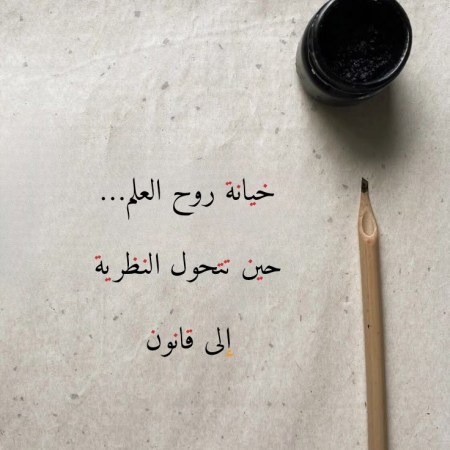 خيانة روح العلم...
حين تتحول النظرية
إلى قانون